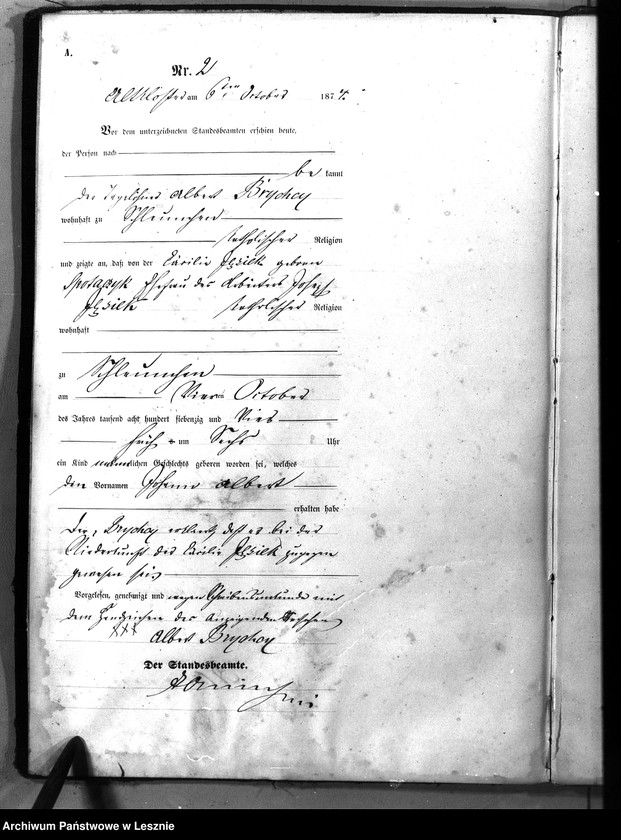 A.
Nr. 2
Altkloster am 6ten October 1874.
Vor dem unterzeichneten Standesbeamten erschien heute,
der Person nach
be kannt
der Tagelöhner Albert Brychcy
wohnhaft zu Schleunchen
katholischer Religion
und zeigte an, daß von der Cäcilie geboren
Ehefrau des Arbeiters Josef
katholischer Religion
wohnhaft
zu Schleunchen
am Vierten October
des Jahres tausend acht hundert siebenzig und Vier
früh um Sechs Uhr
ein Kind männlichen Geschlechts geboren worden sei, welches
den Vornamen Johann Albert
erhalten habe
Der, Brychcy erklärt, daß er bei der
Niederkunft der Cäcilie zugegen
gewesen sei
Vorgelesen, genehmigt und wegen Schreibensunkunde mit
dem Handzeichen des Anzeigenden versehen
XXX Albert Brychcy
Der Standesbeamte.
Archiwum Państwowe w Lesznie